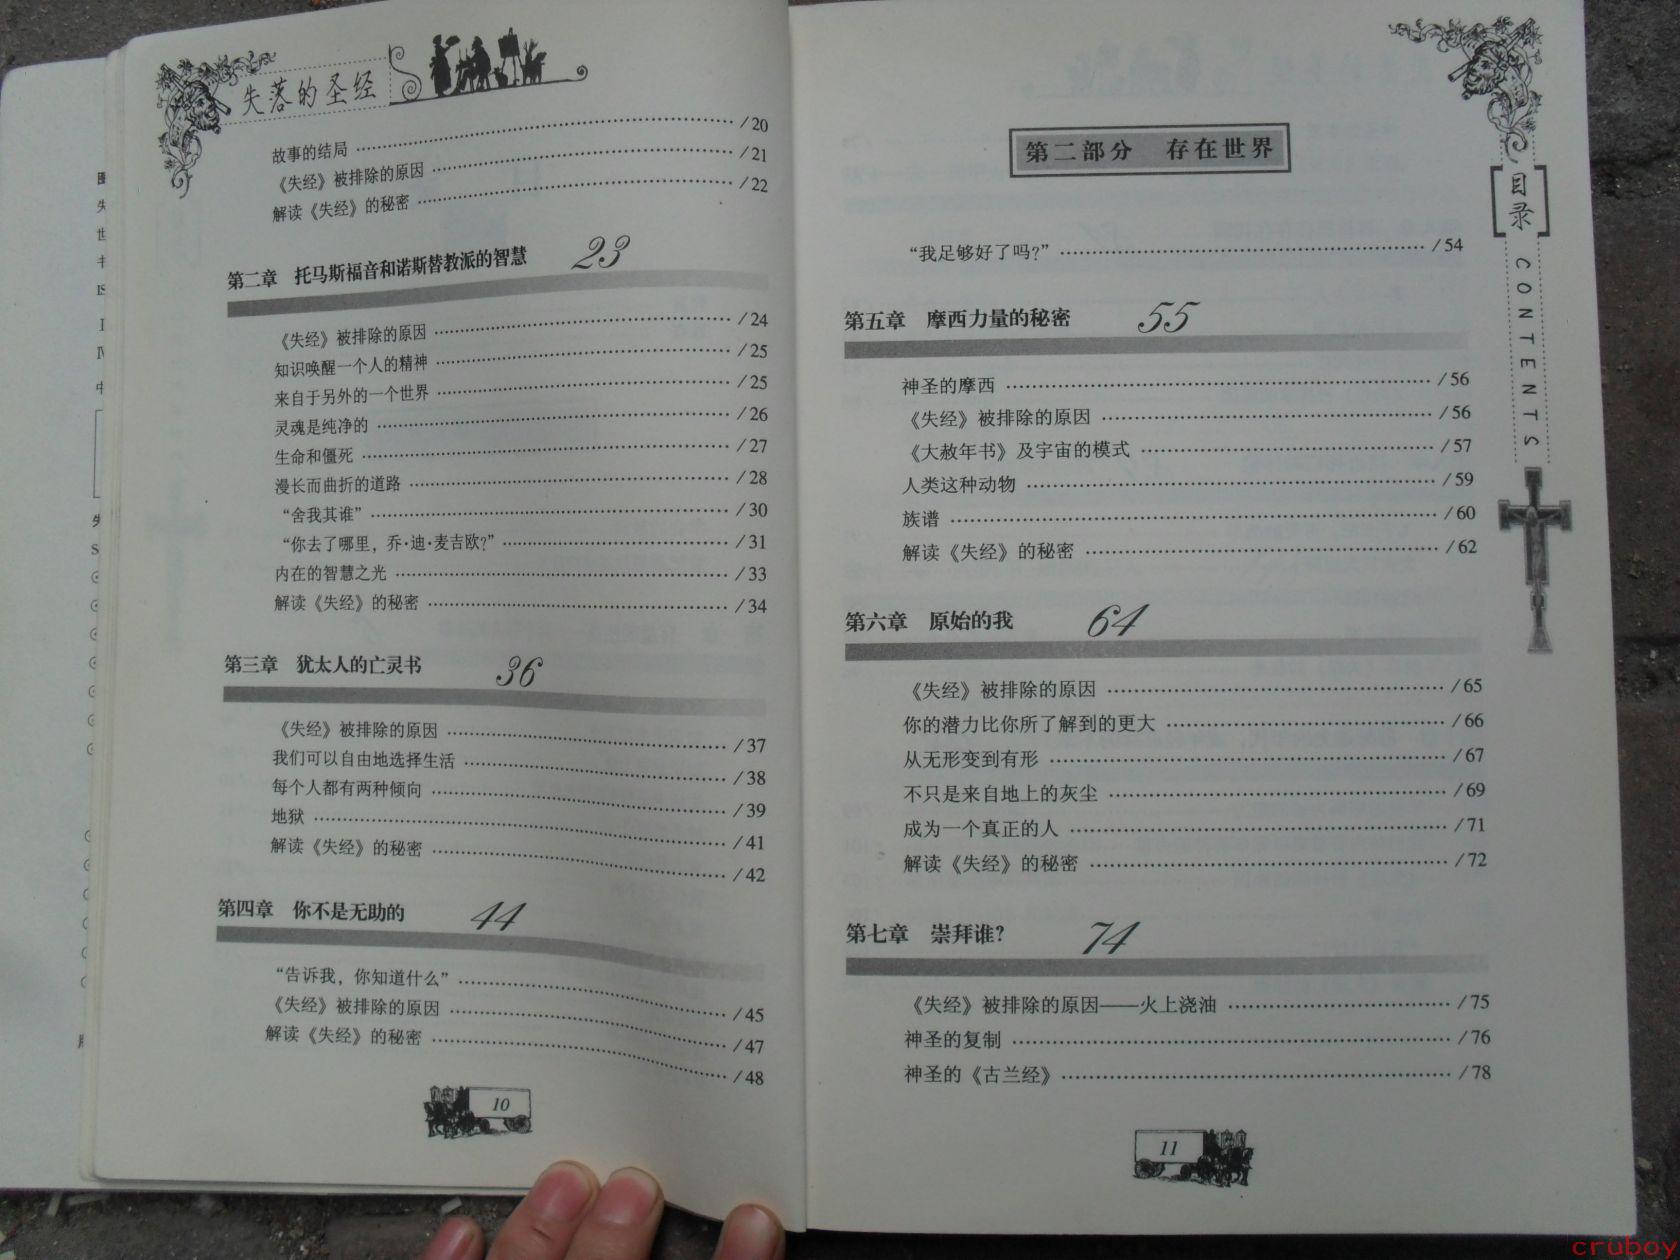 失落的圣经
故事的结局 /20
《失经》被排除的原因 /21
解读《失经》的秘密 /22
第二章 托马斯福音和诺斯替教派的智慧 23
《失经》被排除的原因 /24
知识唤醒一个人的精神 /25
来自于另外的一个世界 /25
灵魂是纯净的 /26
生命和僵死 /27
漫长而曲折的道路 /28
“舍我其谁” /30
“你去了哪里，乔·迪·麦吉欧?” /31
内在的智慧之光 /33
解读《失经》的秘密 /34
第三章 犹太人的亡灵书 36
《失经》被排除的原因 /37
我们可以自由地选择生活 /38
每个人都有两种倾向 /39
地狱 /41
解读《失经》的秘密 /42
第四章 你不是无助的 44
“告诉我，你知道什么” /45
《失经》被排除的原因 /47
解读《失经》的秘密 /48
10
第二部分 存在世界
“我足够好了吗?” /54
第五章 摩西力量的秘密 55
神圣的摩西 /56
《失经》被排除的原因 /56
《大赦年书》及宇宙的模式 /57
人类这种动物 /59
族谱 /60
解读《失经》的秘密 /62
第六章 原始的我 64
《失经》被排除的原因 /65
你的潜力比你所了解到的更大 /66
从无形变到有形 /67
不只是来自地上的灰尘 /69
成为一个真正的人 /71
解读《失经》的秘密 /72
第七章 崇拜谁? 74
《失经》被排除的原因——火上浇油 /75
神圣的复制 /76
神圣的《古兰经》 /78
11
目录
CONTENTS
cruboy